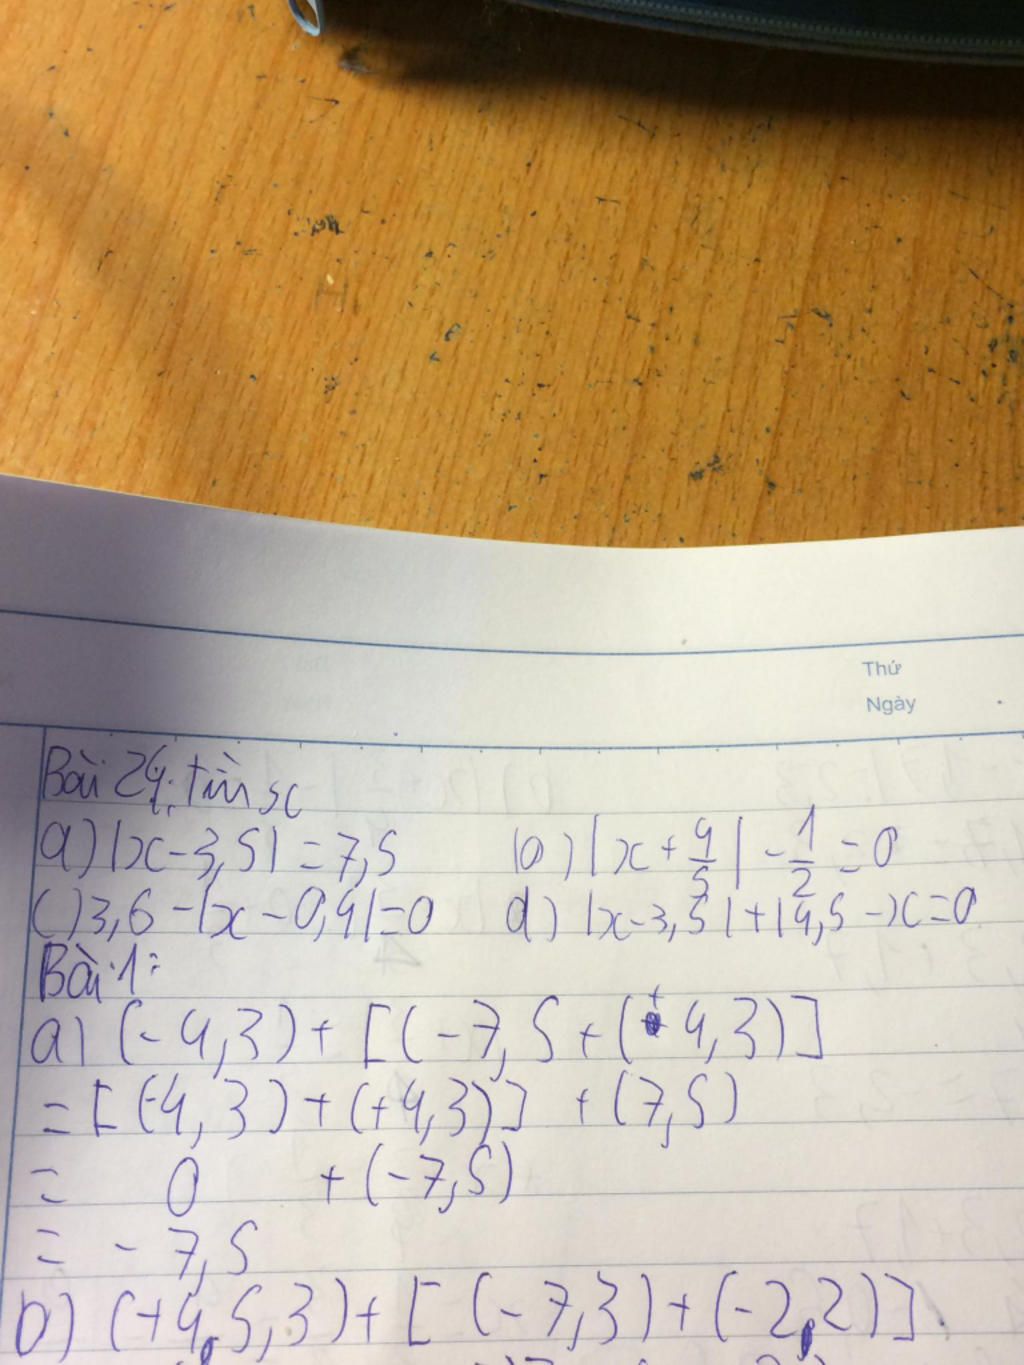 Thứ
Ngày
Bài 24: tìm x
a) |x - 3,5| = 7,5 b) |x + 4/5| - 1/2 = 0
c) 3,6 - |x - 0,4| = 0 d) |x - 3,5| + |4,5 - x = 0
Bài 1:
a) (- 4,3) + [(- 7,5 + (+ 4,3)]
= [(-4,3) + (+4,3)] + (7,5)
= 0 + (-7,5)
= - 7,5
b) (+4,5,3) + [(-7,3) + (-2,2)].